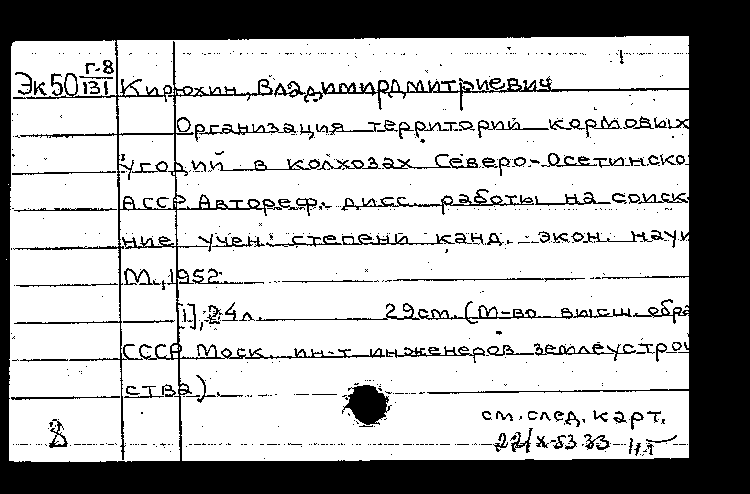 Эк50 г-8/131 Кирюхин, Владимир Дмитриевич
Организация территорий кормовых
угодий в колхозах Северо-Осетинско
АССР. Автореф. дисс. работы на соиск
ние учен. степени канд. экон. наук
М., 1952.
[1], 24 л. 29 см. (М-во высш. обра
СССР. Моск. ин-т инженеров землеустрой
ства).
см. след. карт.
8